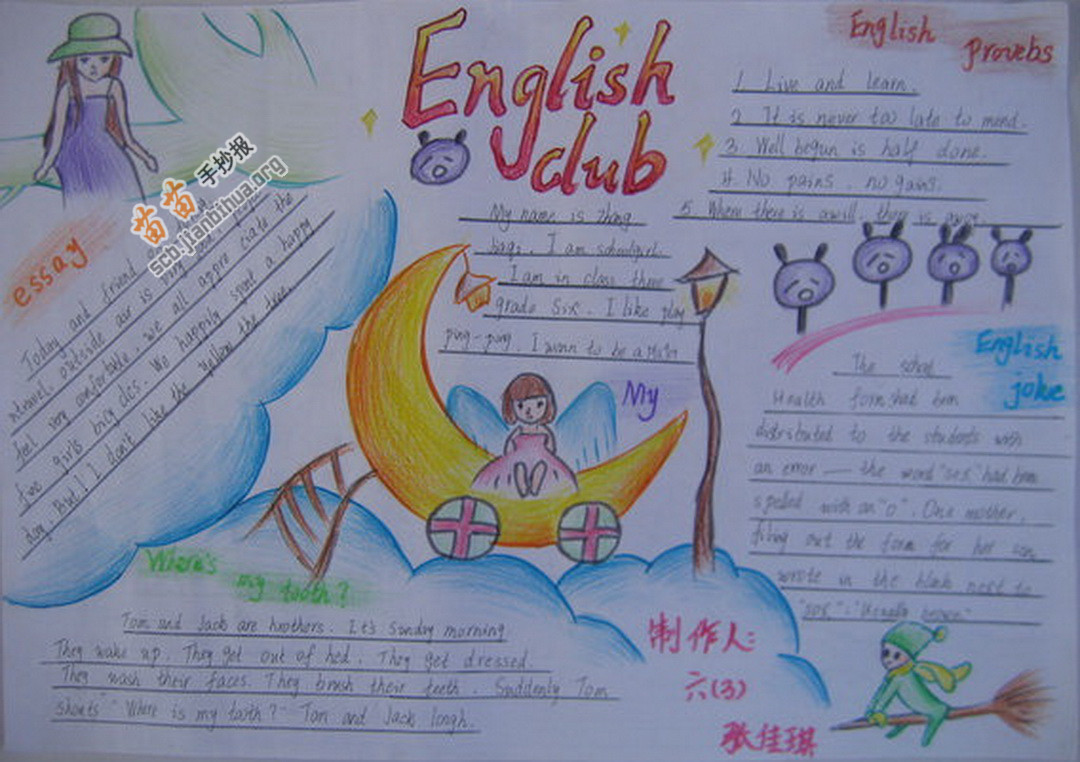 English club
English
Provebs
1. Live and learn.
2. It is never too late to mend.
3. Well begun is half done.
4. No pains, no gains.
5. Where there is a will, there is away.
My name is Zhang
I am schoolgirl.
I am in class three
grade six. I like play
ping-ping. I wann to be a
My
essay
Today and friend
travel. outside air is
feel very comfortable. we all appre ciate the
two girl's bicy cles. We happily spent a happy
day. But, I don't like the yellow the tree.
苗苗手抄报
scb.jianbihua.org
English
joke
The school
Health form had been
distributed to the students with
an error — the word "sex" had been
spelled with an "o". One mother,
filing out the form for her son
wrote in the blank next to
"sox": "Usually brown"
Where's
my tooth?
Tom and Jack are brothers. It's Sunday morning
They wake up. They get out of bed. They get dressed.
They wash their faces. They brush their teeth. Suddenly Tom
shouts "Where is my tooth?" Tom and Jack laugh.
制作人:
六(3)
张佳琪